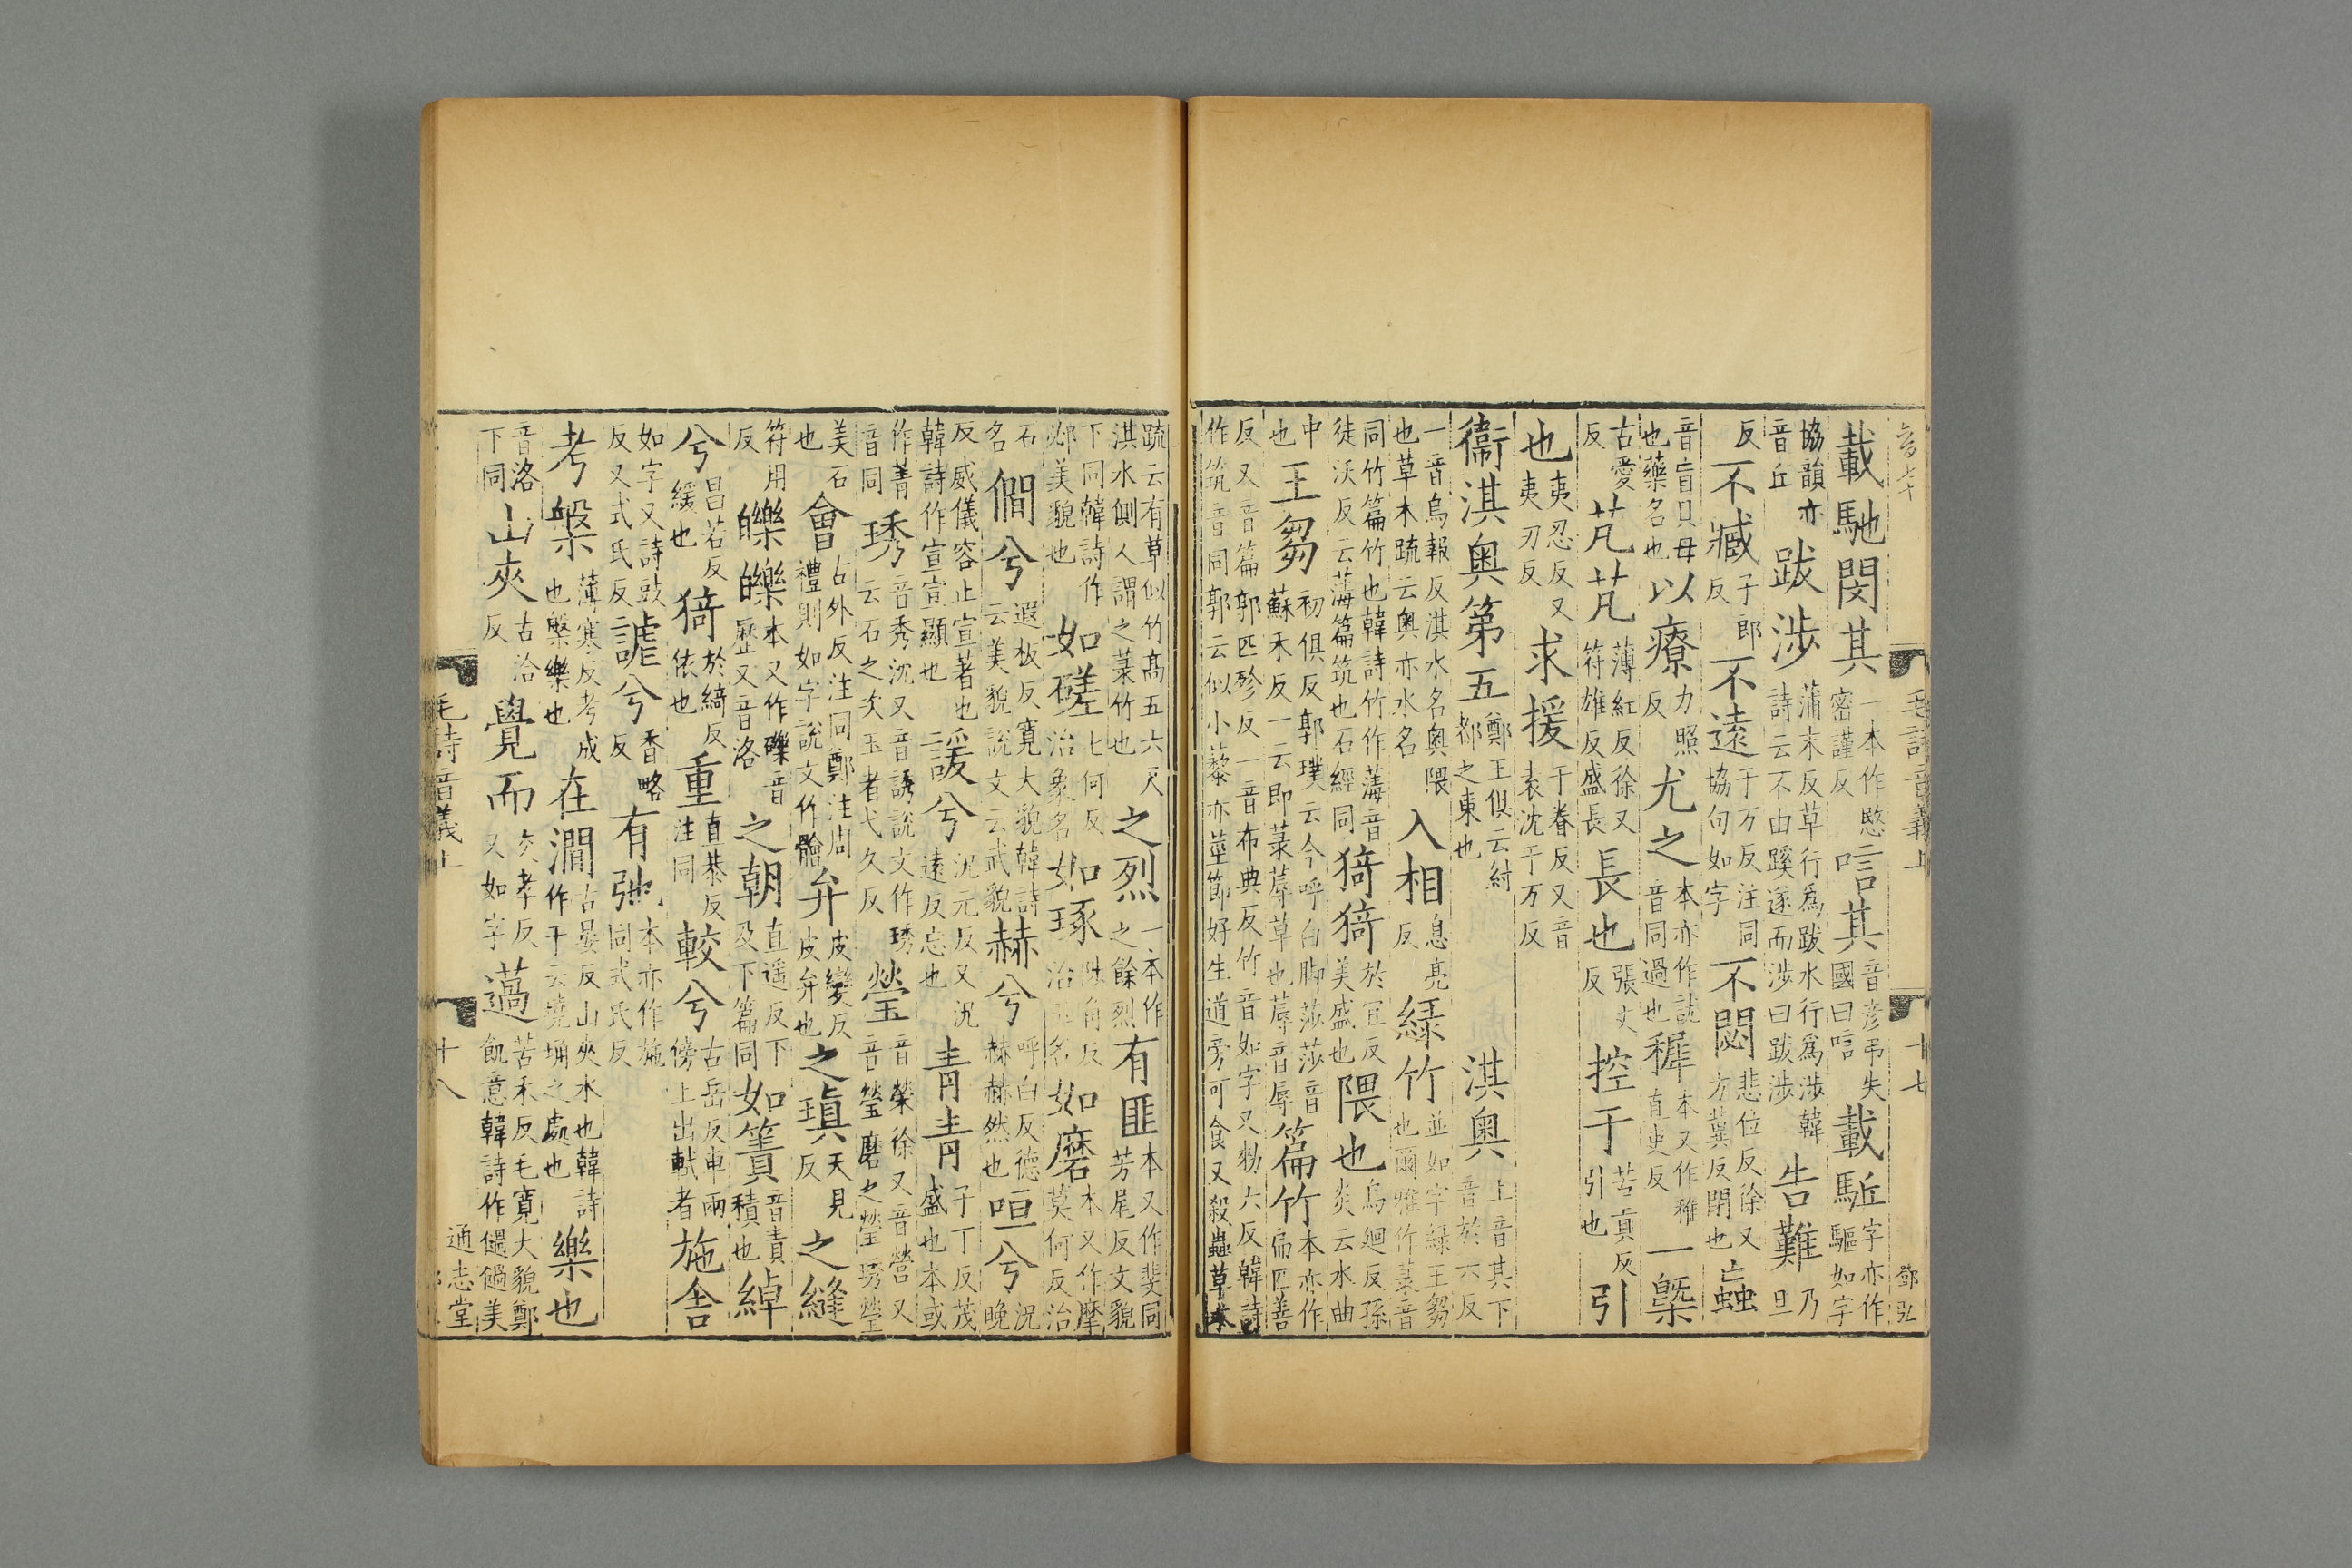 載馳閔其一本作愍密謹反唁其音彥弔失國曰唁載駈字亦作驅如字
協韻亦音丘跋涉蒲末反草行為跋水行為涉韓詩云不由蹊遂而涉曰跋涉告難乃旦
反不臧子郎反不遠于万反注同協句如字不閟悲位反徐又方冀反閉也蝱
音盲貝母也藥名也以療力照反尤之本亦作訧音同過也穉本又作稚直吏反一槩
古愛反芃芃薄紅反徐又符雄反盛長長也張丈反控于苦貢反引也引
也夷忍反又夷刃反求援于眷反又音袁沈于万反
衞淇奧第五鄭王俱云紂都之東也淇奧上音其下音於六反
一音烏報反淇水名奧隈也草木疏云奧亦水名入相息亮反綠竹並如字綠王芻也爾雅作菉音
同竹篇竹也韓詩竹作薄音徒沃反云薄篇筑也石經同猗猗於宜反美盛也隈也烏迴反孫炎云水曲
中也王芻初俱反郭璞云今呼白脚莎莎音蘇禾反一云即菉蓐草也蓐音辱篇竹本亦作扁匹善
反又音篇郭匹殄反一音布典反竹音如字又勑六反韓詩作筑音同郭云似小藜赤莖節好生道旁可食又殺蟲草木
疏云有草似竹高五六尺淇水側人謂之菉竹也之烈一本作之餘烈有匪本又作斐同芳尾反文貌
下同韓詩作邲美貌也如磋七何反治象名如琢陟角反治玉名如磨本又作摩莫何反治
石名僩兮遐板反寬大貌韓詩云美貌說文云武貌赫兮呼白反德赫赫然也咺兮況晚
反威儀容止宣著也韓詩作宣宣顯也諼兮況元反又況遠反忘也青青子丁反茂盛也本或
作菁音同琇音秀沈又音誘說文作琇云石之次玉者弋久反瑩音榮徐又音營又音瑩磨之瑩琇瑩
美石也會古外反注同鄭注周禮則如字說文作䯤弁皮變反皮弁也之瑱天見反之縫
符用反皪皪本又作礫音歷又音洛之朝直遥反下及下篇同如簀音責積也綽
兮昌若反緩也猗於綺反依也重直恭反注同較兮古岳反車兩傍上出軾者施舍
如字又詩豉反又式氏反謔兮香略反有弛本亦作施同式氏反
考槃薄寒反考成也槃樂也在澗古晏反山夾水也韓詩作干云墝埆之處也樂也
音洛下同山夾古洽反覺而交孝反又如字薖苦禾反毛寬大貌鄭飢意韓詩作𠈭𠈭美
毛詩音義上
十七
鄧弘
毛詩音義上
十八
通志堂